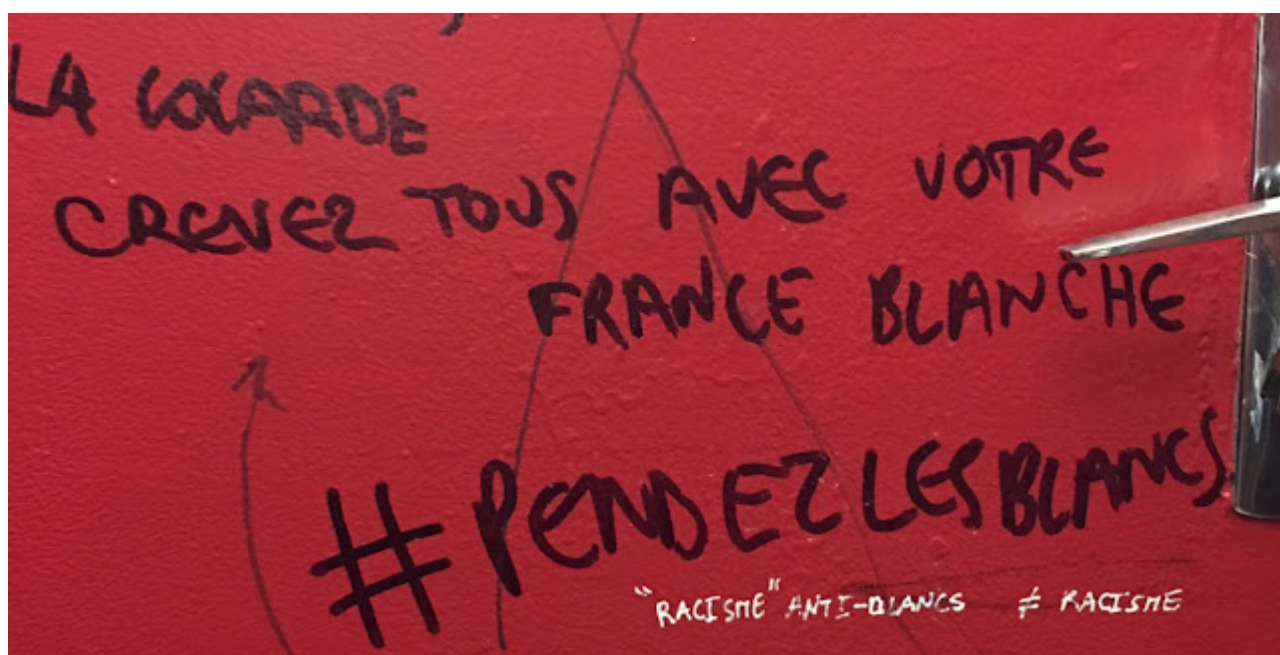 LA COCARDE
CREVEZ TOUS AVEC VOTRE
FRANCE BLANCHE
#PENDEZLESBLANCS
"RACISME" ANTI-BLANCS ≠ RACISME